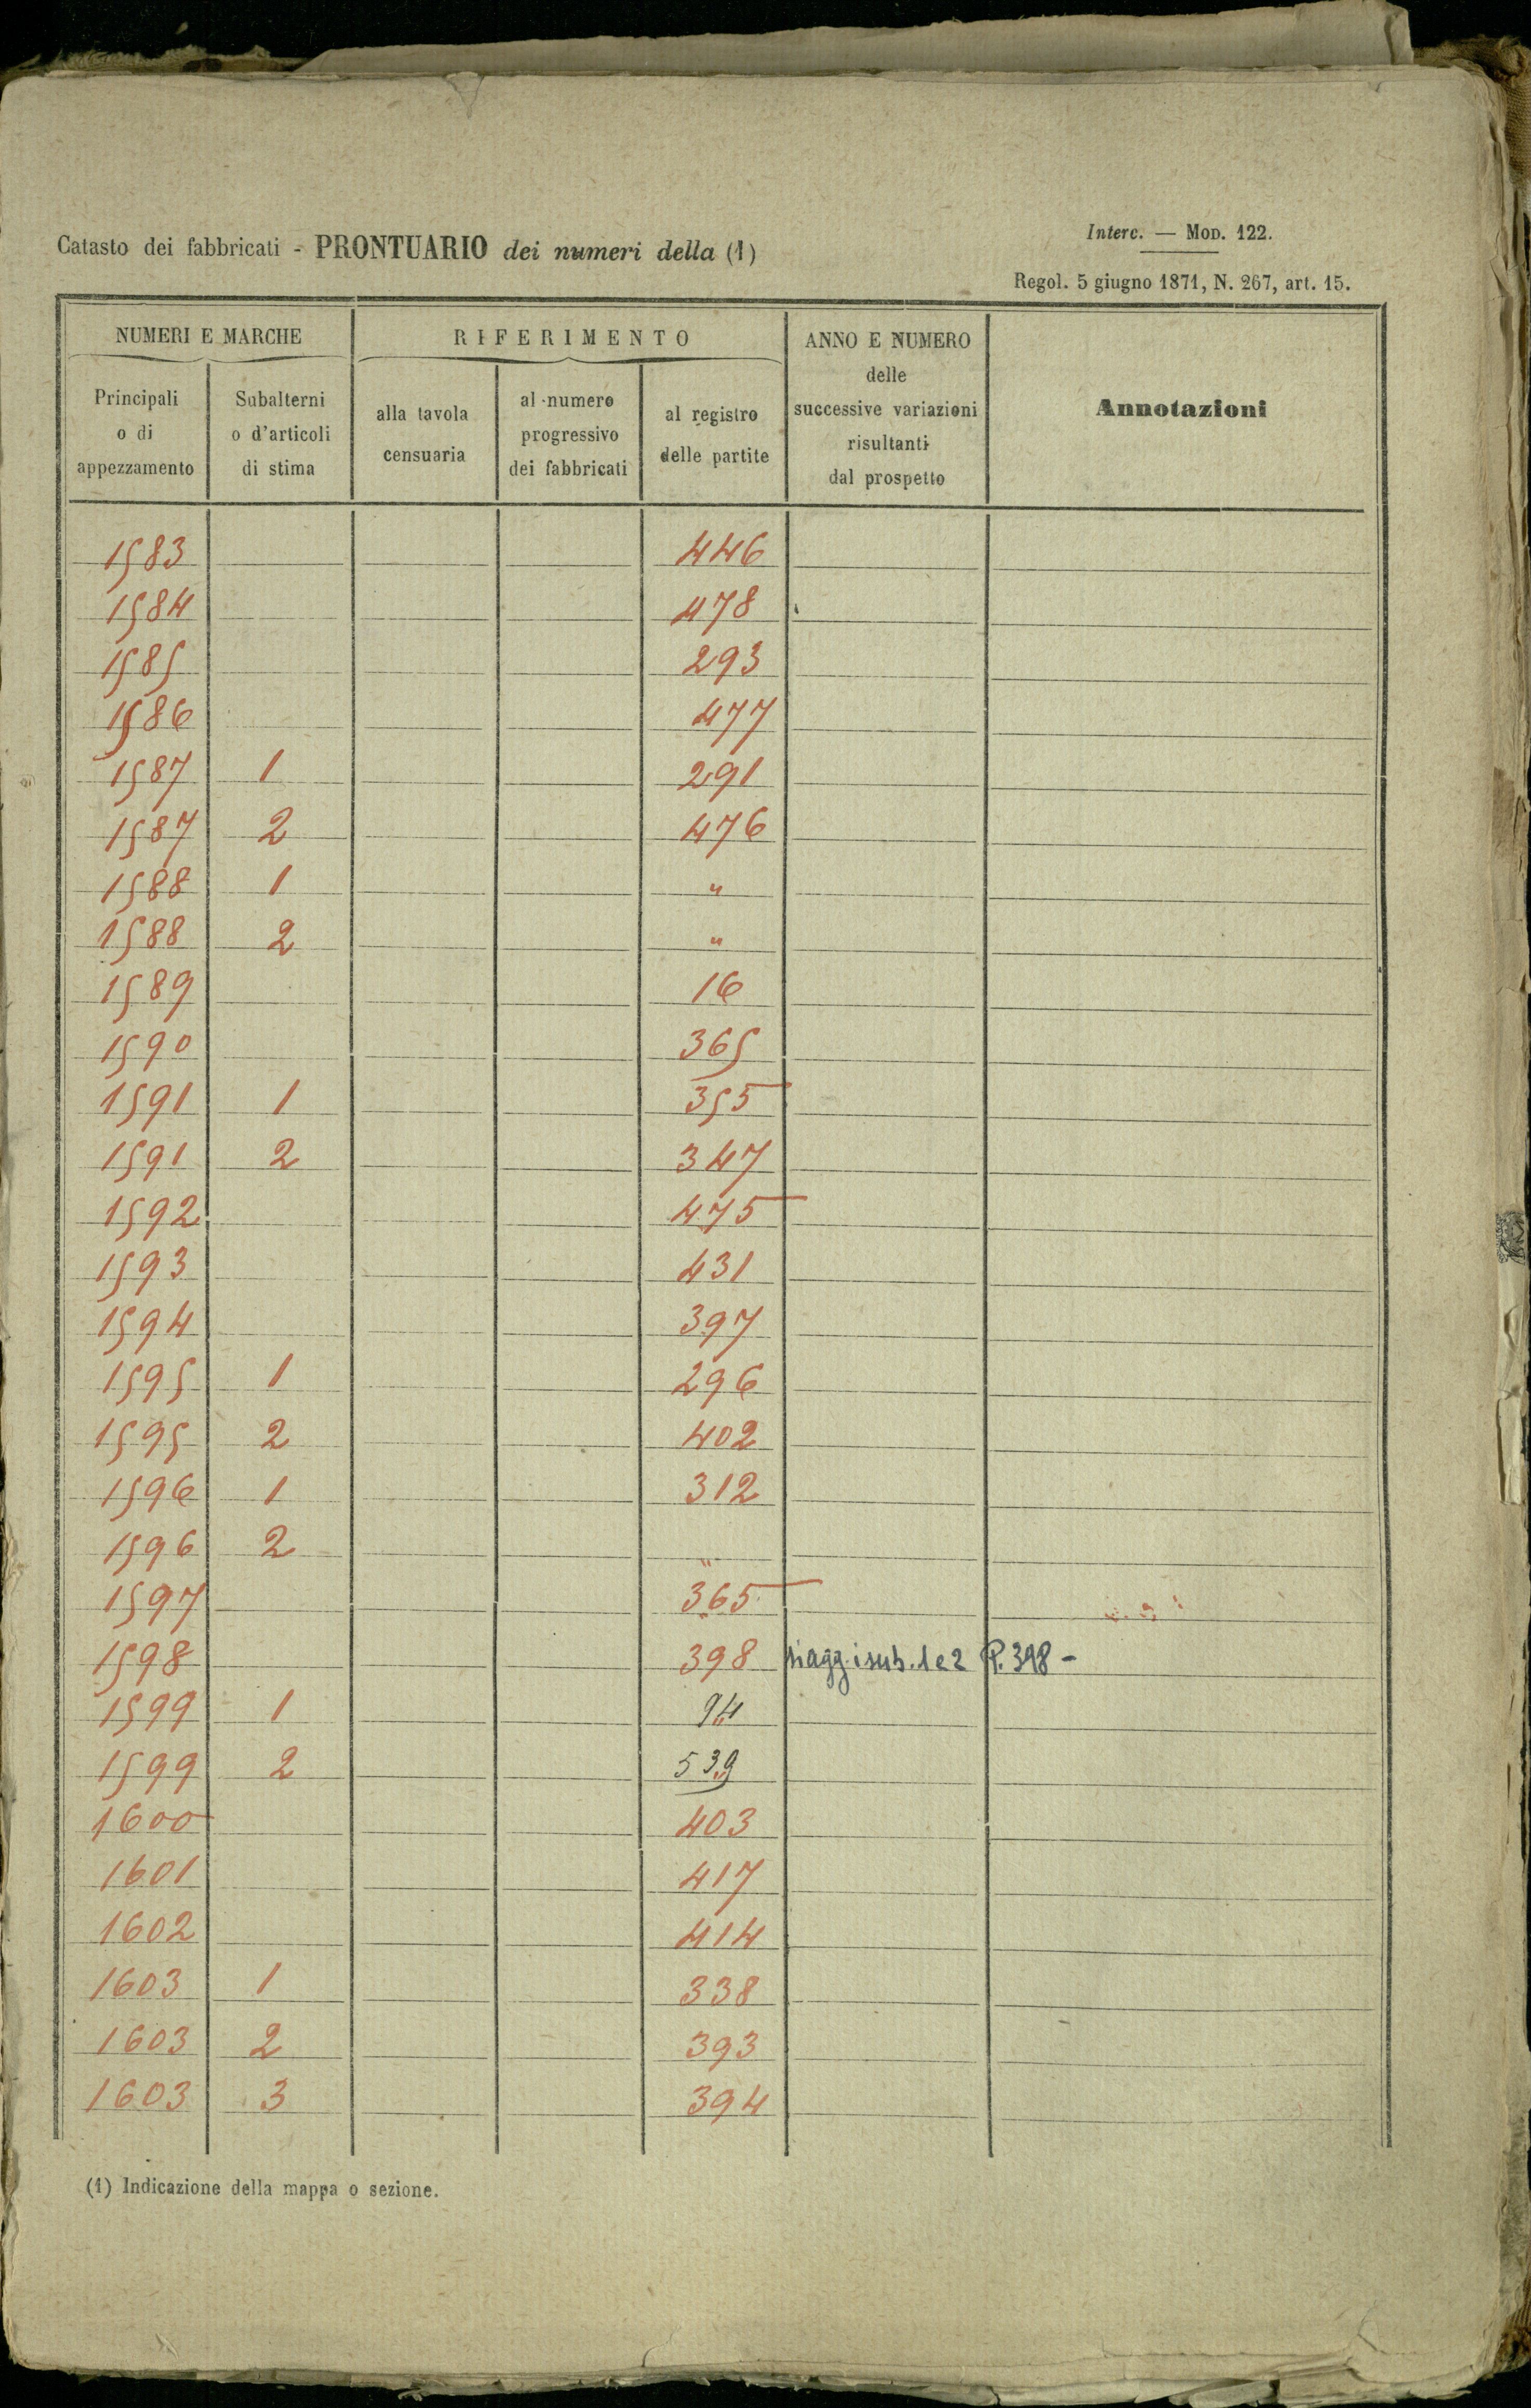 Interc. — MOD. 122.
Catasto dei fabbricati - PRONTUARIO dei numeri della (1)
Regol. 5 giugno 1871, N. 267, art. 15.
NUMERI E MARCHE
Principali
o di
appezzamento
Subalterni
o d'articoli
di stima
RIFERIMENTO
alla tavola
censuaria
al numero
progressivo
dei fabbricati
al registro
delle partite
ANNO E NUMERO
delle
successive variazioni
risultanti
dal prospetto
Annotazioni
1583 446
1584 478
1585 293
1586 477
1587 1 291
1587 2 476
1588 1 "
1588 2 "
1589 16
1590 365
1591 1 355
1591 2 347
1592 475
1593 431
1594 397
1595 1 296
1595 2 402
1596 1 312
1596 2 "
1597 365
1598 398 si agg. i sub. 1 e 2 P. 398 -
1599 1 94
1599 2 539
1600 403
1601 417
1602 414
1603 1 338
1603 2 393
1603 3 394
(1) Indicazione della mappa o sezione.